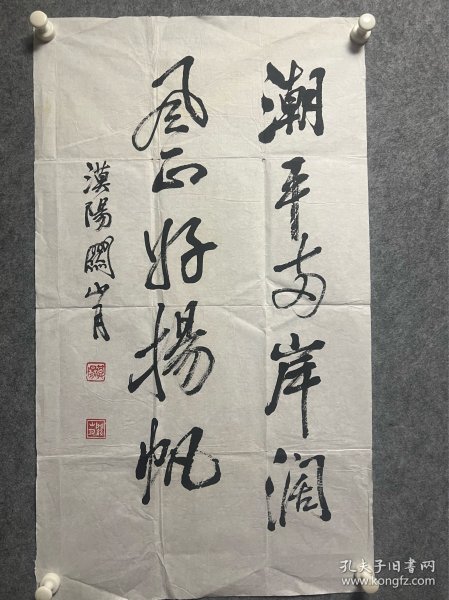 潮平两岸阔
风正好揚帆
漠陽關山月
孔夫子旧书网
www.kongfz.com